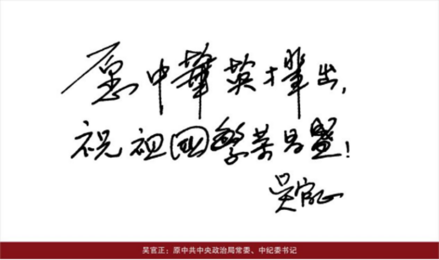 愿中華英才辈出，
祝祖国繁荣昌盛！
吴官正
吴官正：原中共中央政治局常委、中纪委书记